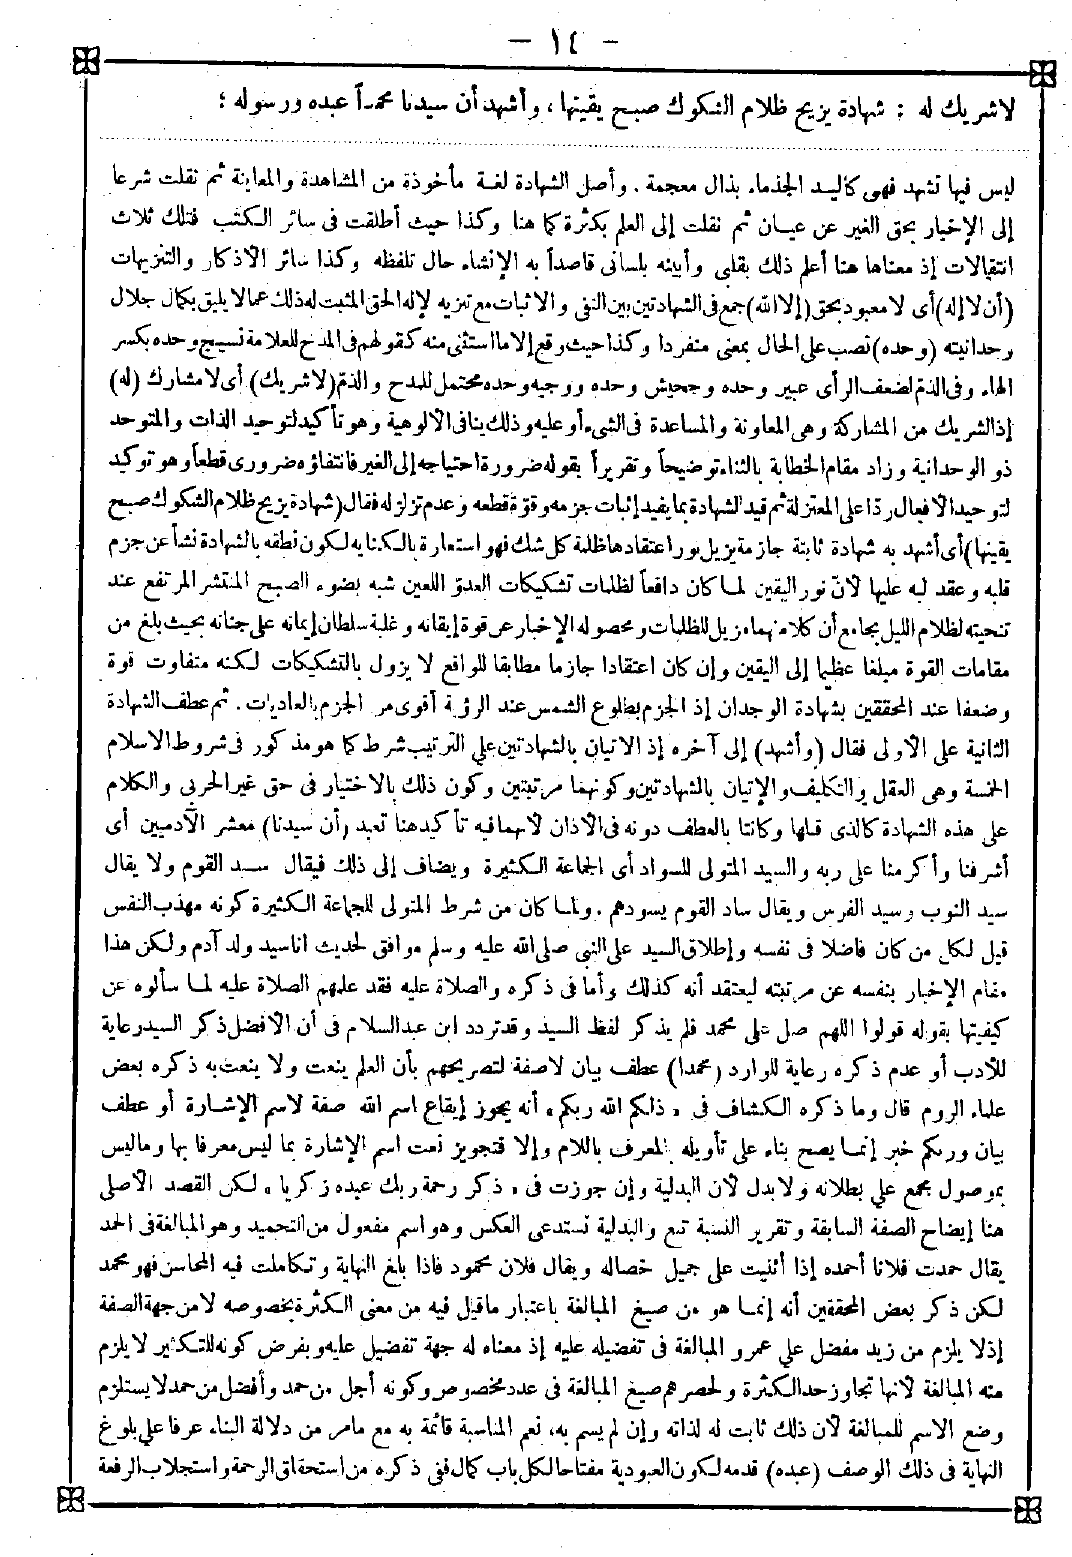 - ١٤ -
لا شريك له : شهادة يزيح ظلام الشكوك صبح يقينها ، وأشهد أن سيدنا محمداً عبده ورسوله ؛
ليس فيها تشهد فهى كاليد الجذماء بذال معجمة . وأصل الشهادة لغة مأخوذة من المشاهدة والمعاينة ثم نقلت شرعا
إلى الإخبار بحق الغير عن عيان ثم نقلت إلى العلم بكثرة كما هنا وكذا حيث أطلقت فى سائر الكتب فتلك ثلاث
انتقالات إذ معناها هنا أعلم ذلك بقلبى وأبينه بلسانى قاصداً به الإنشاء حال تلفظه وكذا سائر الأذكار والتنزيهات
(أن لا إله) أى لا معبود بحق (إلا الله) جمع فى الشهادتين بين النفى والاثبات مع تنزيه لإله الحق المثبت له ذلك عما لا يليق بكمال جلال
وحدانيته (وحده) نصب على الحال بمعنى منفردا وكذا حيث وقع إلا ما استثنى منه كقولهم فى المدح للعلامة نسيج وحده بكسر
الهاء وفى الذم لضعف الرأى عبير وحده وجحيش وحده ورجيه وحده محتمل للمدح والذم (لا شريك) أى لا مشارك (له)
إذ الشريك من المشاركة وهى المعاونة والمساعدة فى الشىء أو عليه وذلك ينافى الألوهية وهو تأكيد لتوحيد الذات والمتوحد
ذو الوحدانية وزاد مقام الخطابة بالثناء توضيحاً وتقريراً بقوله ضرورة احتياجه إلى الغير فانتفاؤه ضرورى قطعاً وهو توكيد
لتوحيد الأفعال ردّا على المعتزلة ثم قيد الشهادة بما يفيد إثبات جزمه وقوّة قطعه وعدم تزلزله فقال (شهادة يزيح ظلام الشكوك صبح
يقينها) أى أشهد به شهادة ثابتة جازمة يزيل نور اعتقادها ظلمة كل شك فهو استعارة بالكناية لكون نطقه بالشهادة نشأ عن جزم
قلبه وعقد لبه عليها لأنّ نور اليقين لما كان دافعاً لظلمات تشكيكات العدوّ اللعين شبه بضوء الصبح المنتشر المرتفع عند
تنحيته لظلام الليل بجامع أن كلا منهما مزيل للظلمات ومحصوله الإخبار عن قوة إيقانه وغلبة سلطان إيمانه على جنانه بحيث بلغ من
مقامات القوة مبلغا عظيما إلى اليقين وإن كان اعتقادا جازما مطابقا للواقع لا يزول بالتشكيكات لكنه متفاوت قوة
وضعفا عند المحققين بشهادة الوجدان إذ الجزم بطلوع الشمس عند الرؤية أقوى من الجزم بالعاديات . ثم عطف الشهادة
الثانية على الأولى فقال (وأشهد) إلى آخره إذ الاتيان بالشهادتين على الترتيب شرط كما هو مذكور فى شروط الاسلام
الخمسة وهى العقل والتكليف والإتيان بالشهادتين وكونهما مرتبتين وكون ذلك بالاختيار فى حق غير الحربى والكلام
على هذه الشهادة كالذى قبلها وكانتا بالعطف دونه فى الأذان لأنهما فيه تأكيد هنا تعبد (أن سيدنا) معشر الآدميين أى
أشرفنا وأكرمنا على ربه والسيد المتولى للسواد أى الجماعة الكثيرة ويضاف إلى ذلك فيقال سيد القوم ولا يقال
سيد الثوب وسيد الفرس ويقال ساد القوم يسودهم . ولما كان من شرط المتولى للجماعة الكثيرة كونه مهذب النفس
قيل لكل من كان فاضلا فى نفسه وإطلاق السيد على النبى صلى الله عليه وسلم موافق لحديث أنا سيد ولد آدم ولكن هذا
مقام الإخبار بنفسه عن مرتبته ليعتقد أنه كذلك وأما فى ذكره والصلاة عليه فقد علمهم الصلاة عليه لما سألوه عن
كيفيتها بقوله قولوا اللهم صل على محمد فلم يذكر لفظ السيد وقد تردد ابن عبد السلام فى أن الأفضل ذكر السيد رعاية
للأدب أو عدم ذكره رعاية للوارد (محمدا) عطف بيان لا صفة لتصريحهم بأن العلم ينعت ولا ينعت به ذكره بعض
علماء الروم قال وما ذكره الكشاف فى « ذلكم الله ربكم » أنه يجوز إيقاع اسم الله صفة لاسم الإشارة أو عطف
بيان وربكم خبر إنما يصح بناء على تأويله بالمعرف باللام وإلا فتجويز نعت اسم الإشارة بما ليس معرفا بها وما ليس
بموصول مجمع على بطلانه ولا بدل لأن البدلية وإن جوزت فى « ذكر رحمة ربك عبده زكريا » لكن القصد الأصلى
هنا إيضاح الصفة السابقة وتقرير النسبة تبع والبدلية تستدعى العكس وهو اسم مفعول من التحميد وهو المبالغة فى الحمد
يقال حمدت فلانا أحمده إذا أثنيت على جميل خصاله ويقال فلان محمود فاذا بلغ النهاية وتكاملت فيه المحاسن فهو محمد
لكن ذكر بعض المحققين أنه إنما هو من صيغ المبالغة باعتبار ما قيل فيه من معنى الكثرة بخصوصه لا من جهة الصفة
إذ لا يلزم من زيد مفضل على عمرو المبالغة فى تفضيله عليه إذ معناه له جهة تفضيل عليه وبفرض كونه للتكثير لا يلزم
منه المبالغة لأنها تجاوز حد الكثرة ولحصرهم صيغ المبالغة فى عدد مخصوص وكونه أجل من حمد وأفضل من حمد لا يستلزم
وضع الاسم للمبالغة لأن ذلك ثابت له لذاته وإن لم يسم به، نعم المناسبة قائمة به مع مامر من دلالة البناء عرفا على بلوغ
النهاية فى ذلك الوصف (عبده) قدمه لكون العبودية مفتاحا لكل باب كمال ففى ذكره من استحقاق الرحمة واستجلاب الرفعة